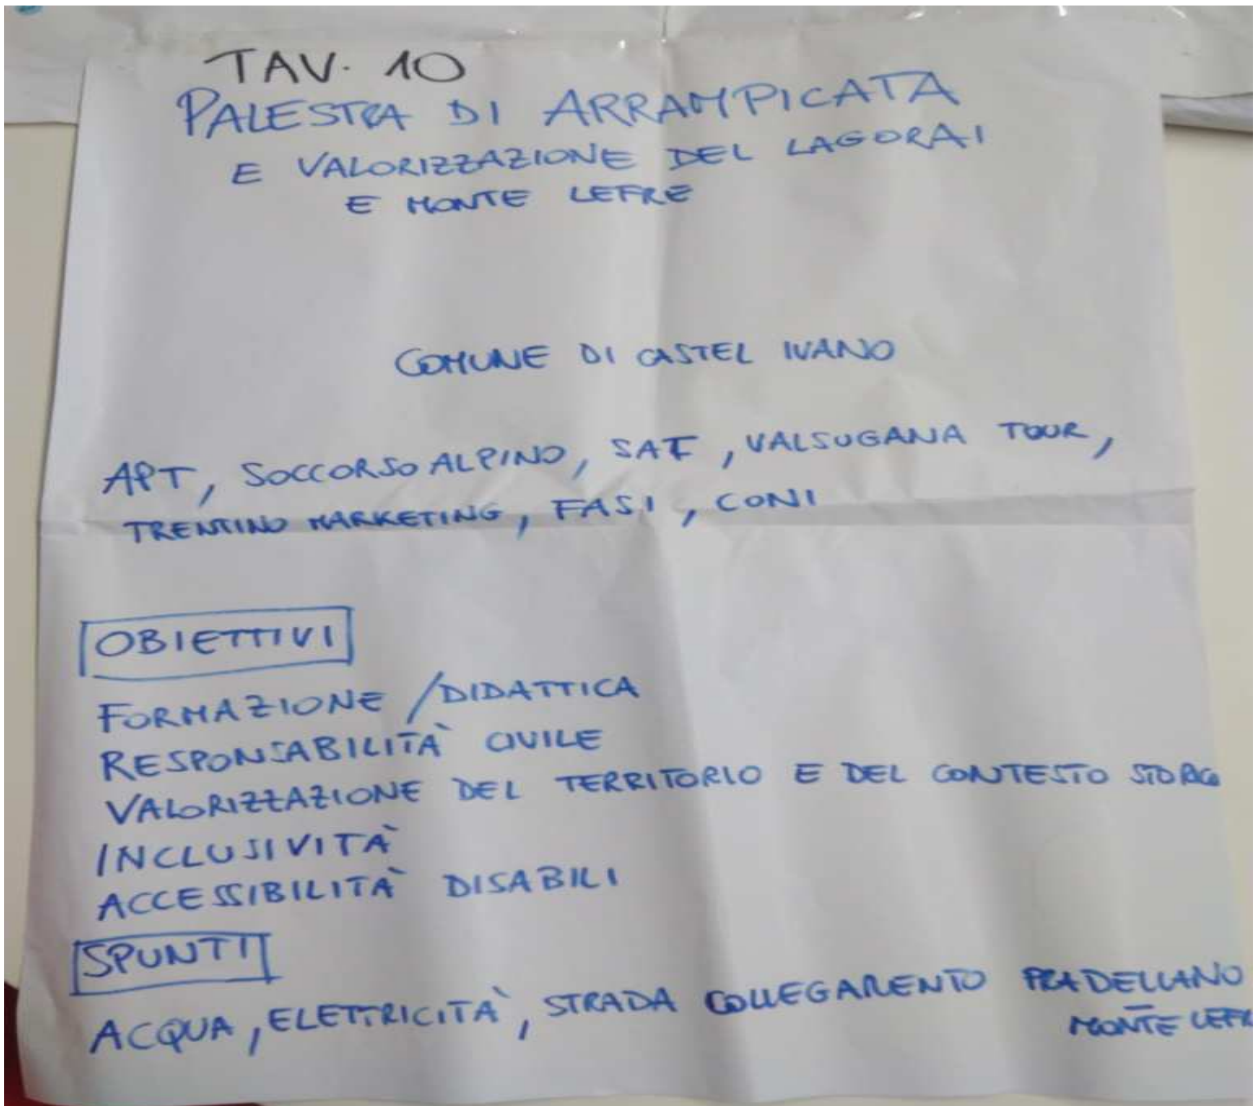 TAV. 10
PALESTRA DI ARRAMPICATA
E VALORIZZAZIONE DEL LAGORAI
E MONTE LEFRE
COMUNE DI CASTEL IVANO
APT, SOCCORSO ALPINO, SAT, VALSUGANA TOUR,
TRENTINO MARKETING, FASI, CONI
OBIETTIVI
FORMAZIONE / DIDATTICA
RESPONSABILITÀ CIVILE
VALORIZZAZIONE DEL TERRITORIO E DEL CONTESTO STORICO
INCLUSIVITÀ
ACCESSIBILITÀ DISABILI
SPUNTI
ACQUA, ELETTRICITÀ, STRADA COLLEGAMENTO PRADELLANO
– MONTE LEFRE